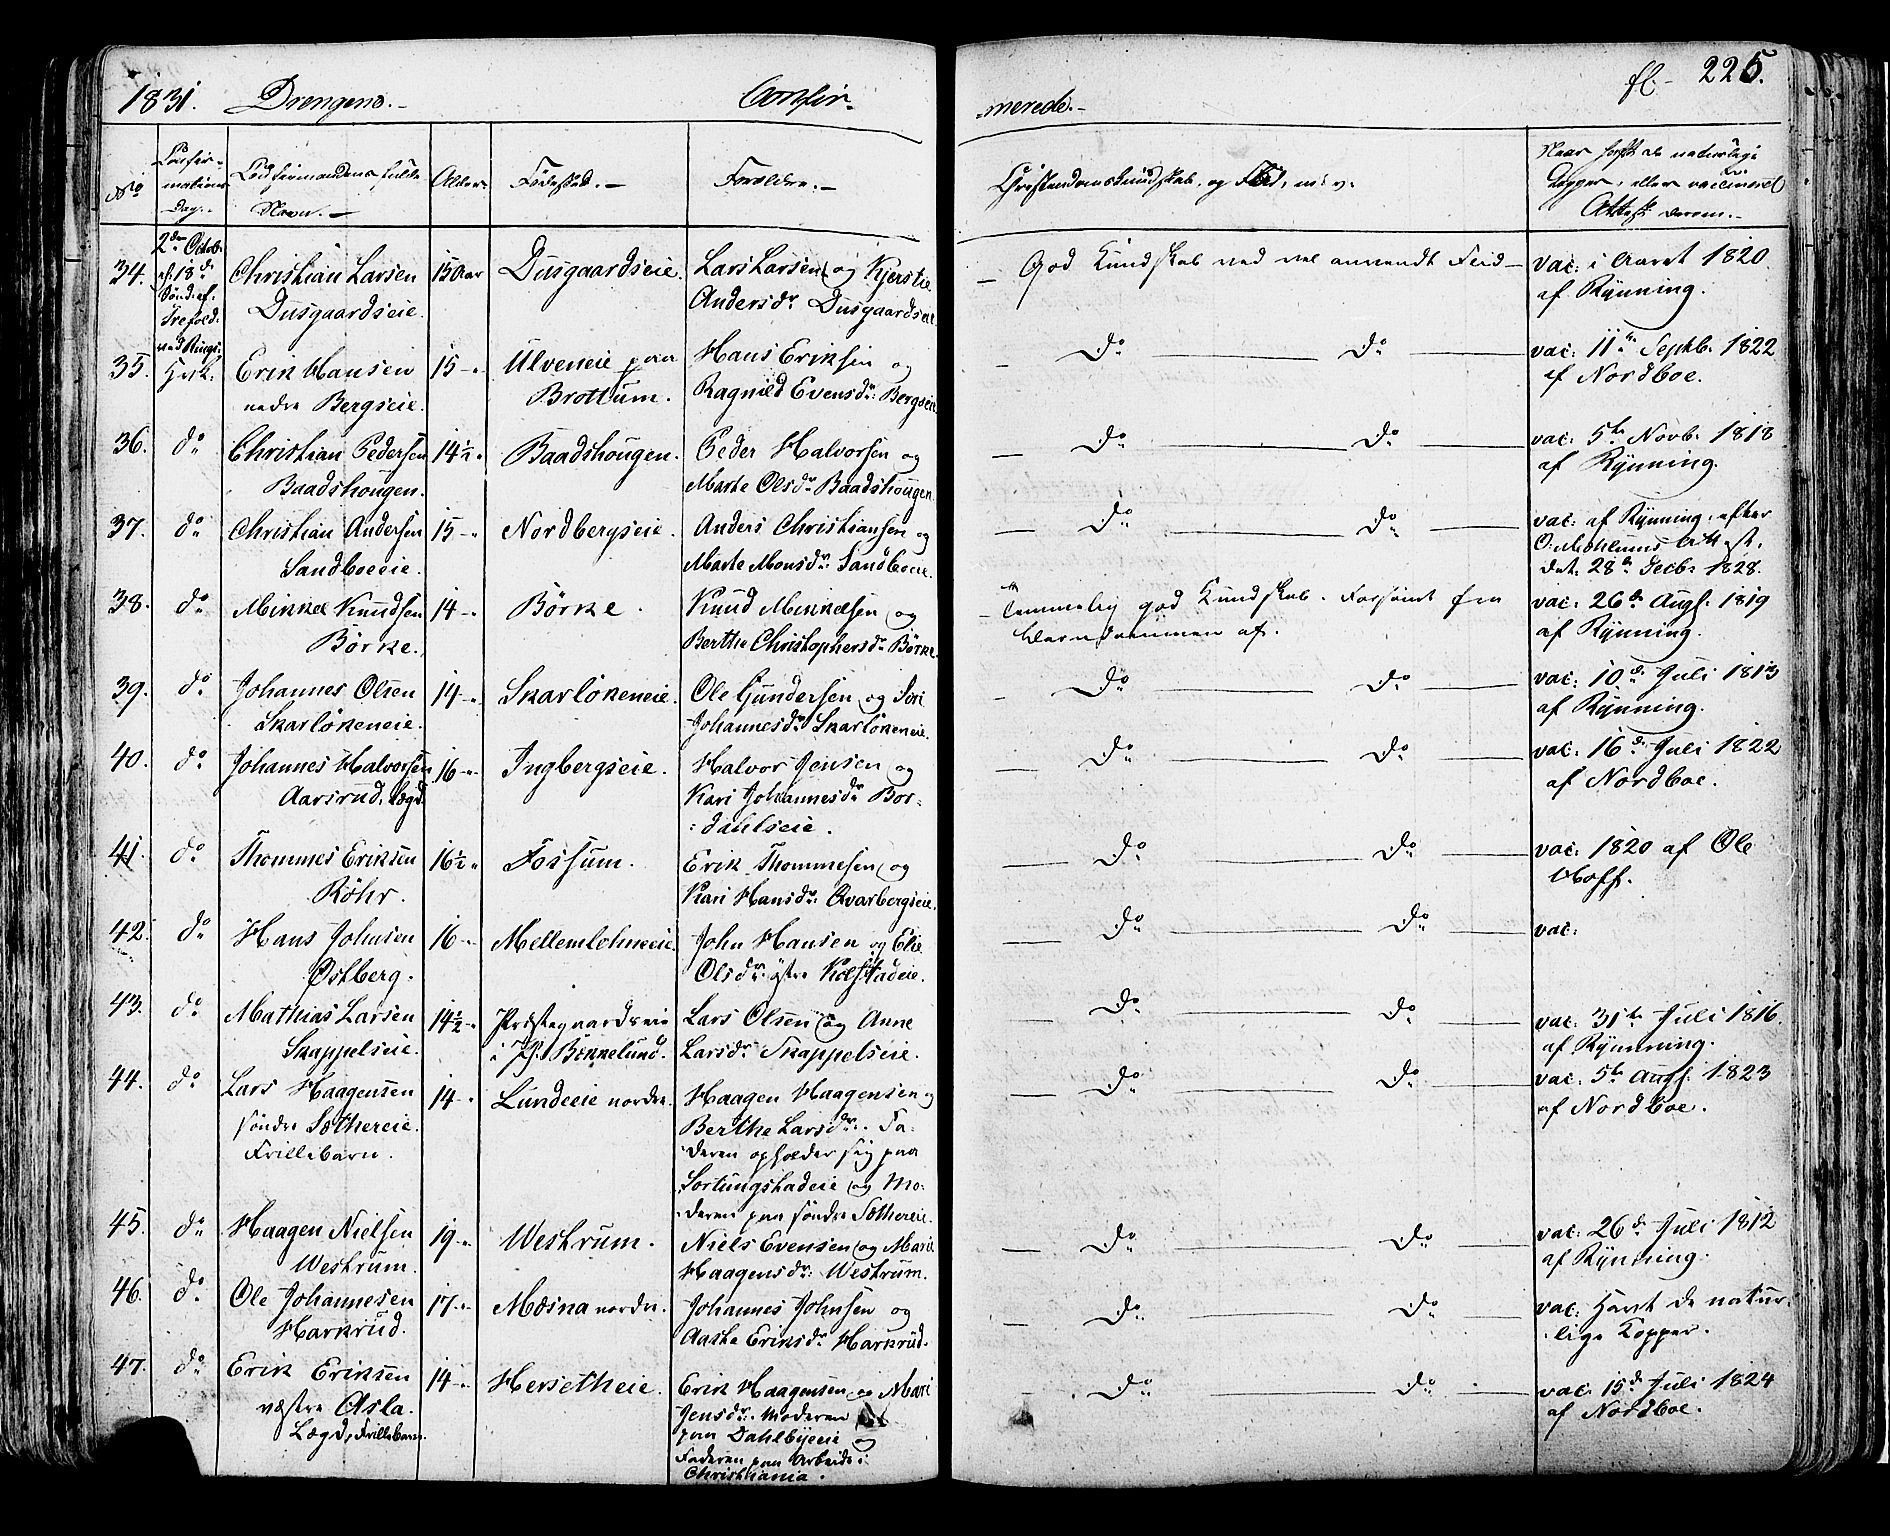 1831. Drengene.- Confir-
-merede.- fl- 225.
No
Confir-
mations
Dag.-
Confirmandens fulde
Navn.-
Alder
Födested.-
Forældre.-
Christendomskundskab, og Flid, m: v:
Naar havt de naturlige
Kopper, eller vaccineret
Attest derom.-
34.
2den Octob.
ef. 18de
Sönd. ef.
Trefold.
ved Rings:
Hvk:
Christian Larsen
Dusgaardseie.
15 Aar
Dusgaardseie.
Lars Larsen og Kjerstie
Andersdr Dusgaardseie
God Kundskab ved vel anvendt Flid
vac: i Aaret 1820.
af Rynning.
35.
Erik Hansen
nedre Bergseie.
15-"
Ulveneie paa
Brottum.
Hans Eriksen og
Ragnild Evensdr: Bergseie
Do Do
vac: 11te Septb. 1822
af Nordboe.
36. do
Christian Pedersen
Baadshougen.
14½"
Baadshougen.
Peder Halvorsen og
Marte Olsdr Baadshougen.
Do Do
vac: 5te Novb. 1818
af Rynning.
37. do
Christian Andersen
Sandboeeie.
15-"
Nordbergseie.
Anders Christiansen og
Marte Monsdr Sandboeie.
Do Do
vac: af Rynning, efter
O. Mohlums Attest,
dat. 28de Decb. 1828.
38. do
Mikkel Knudsen
Börke.
14-"
Börke.
Knud Mikkelsen og
Berthe Christophersdr Börke.
Temmelig god Kundskab. Forsömt fra
Barndommen af.
vac: 26de Augs. 1819
af Rynning.
39. do
Johannes Olsen
Skarlökeneie.
14-"
Skarlökeneie.
Ole Gundersen og Siri
Johannesdr Skarlökeneie.
Do Do
vac: 10de Juli 1813
af Rynning.
40. do
Johannes Halvorsen
Aarsrud, Lægd.
16-"
Ingbergseie.
Halvor Jensen og
Kari Johannesdr Bor-
:dahlseie.
Do Do
vac: 16de Juli 1822
af Nordboe.
41. do
Thommes Eriksen
Röhr.
16½"
Fossum.
Erik Thommesen og
Kari Hansdr: Qvarbergseie.
Do Do
vac: 1820 af Ole
Hoff.
42. do
Hans Johnsen
Ostberg.
16-"
Mellemlohneeie.
John Hansen og Elie
Olsdr. östre Kolstadeie.
Do Do
vac:
43. do
Mathias Larsen
Skappelseie.
14½"
Præstegaardseie
i Bennelund.
Lars Olsen og Anne
Larsdr Skappelseie.
Do Do
vac: 31te Juli 1816.
af Rynning.
44. do
Lars Haagensen
söndre Sæthereie.
Frillebarn.
14-"
Lundeeie nordre.
Haagen Haagensen og
Berthe Larsdr. Fa-
:deren opholder sig paa
Sortungstadeie og Mo-
:deren paa söndre Sæthereie.
Do Do
vac: 5te Augs. 1823
af Nordboe.
45. do
Haagen Nielsen
Westrum.
19-"
Westrum.
Niels Evensen og Marie
Haagensdr: Westrum.
Do Do
vac: 26de Juli 1812
af Rynning.
46. do
Ole Johannesen
Harkrud.
17-"
Mæsna nordre.
Johannes Johnsen og
Aaste Eriksdr Harkrud.
Do Do
vac: Havt de natur-
:lige Kopper.
47. do
Erik Eriksen
væstre Asla.
Lægd, Frillebarn.
14-"
Hersetheie.
Erik Haagensen og Mari
Jensdr. Moderen
paa Dahlbyeeie og
Faderen paa Arbeide i
Christiania.
Do Do
vac: 15de Juli 1824
af Nordboe.